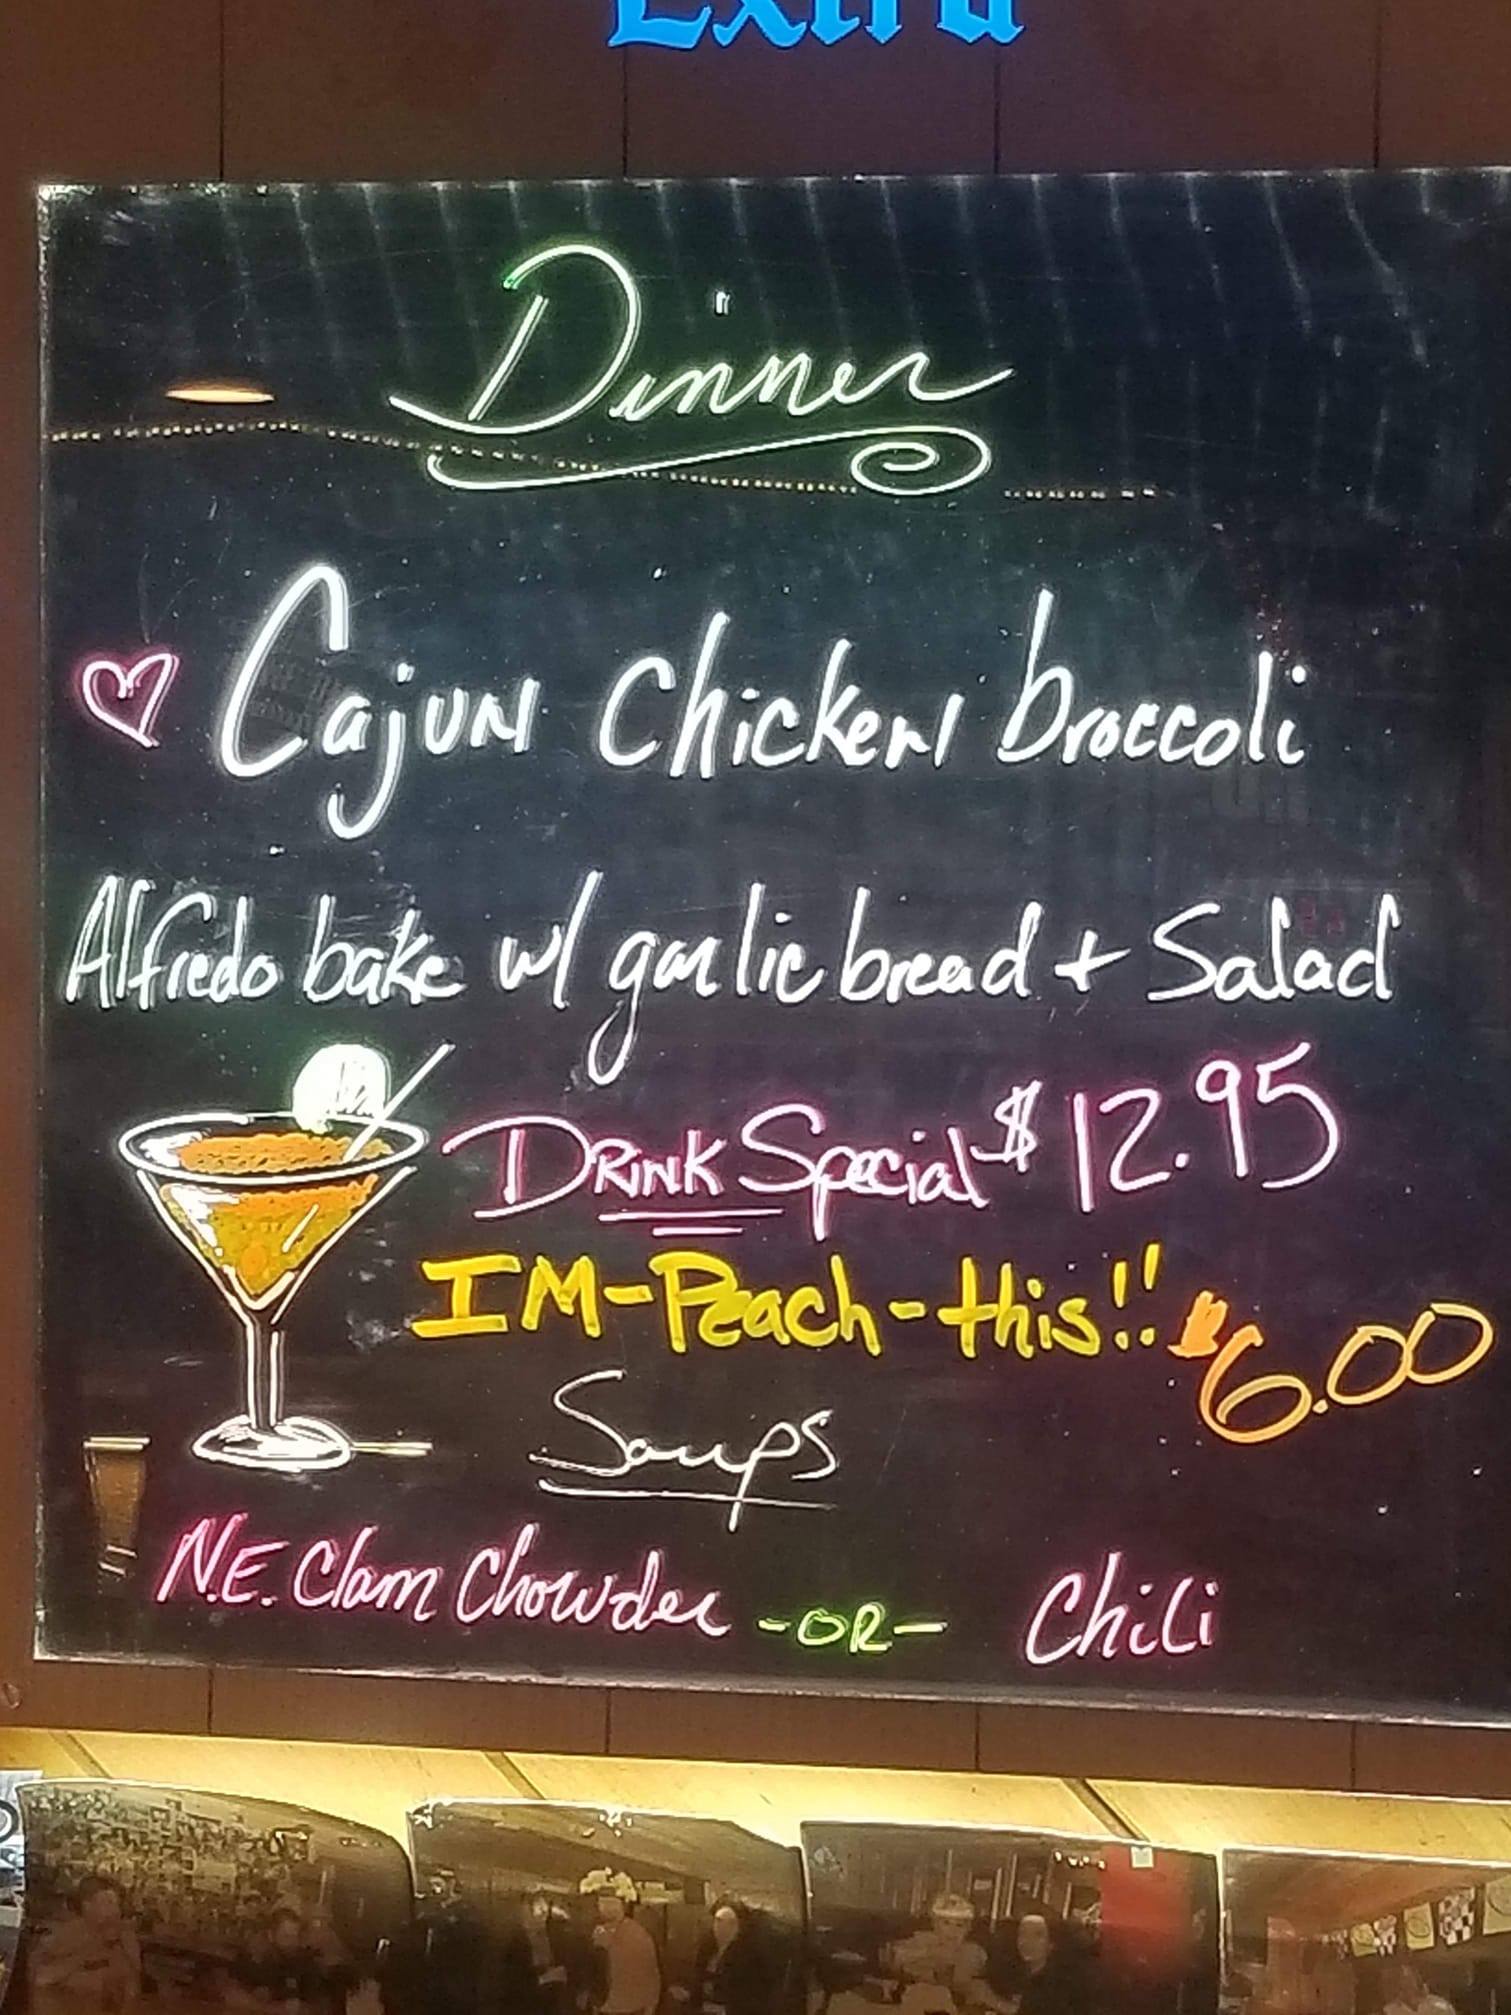 Extra
Dinner
Cajun Chicken broccoli
Alfredo bake w/ garlic bread + Salad
$12.95
Drink Special
IM-Peach-this!! $6.00
Soups
N.E. Clam Chowder -OR- Chili